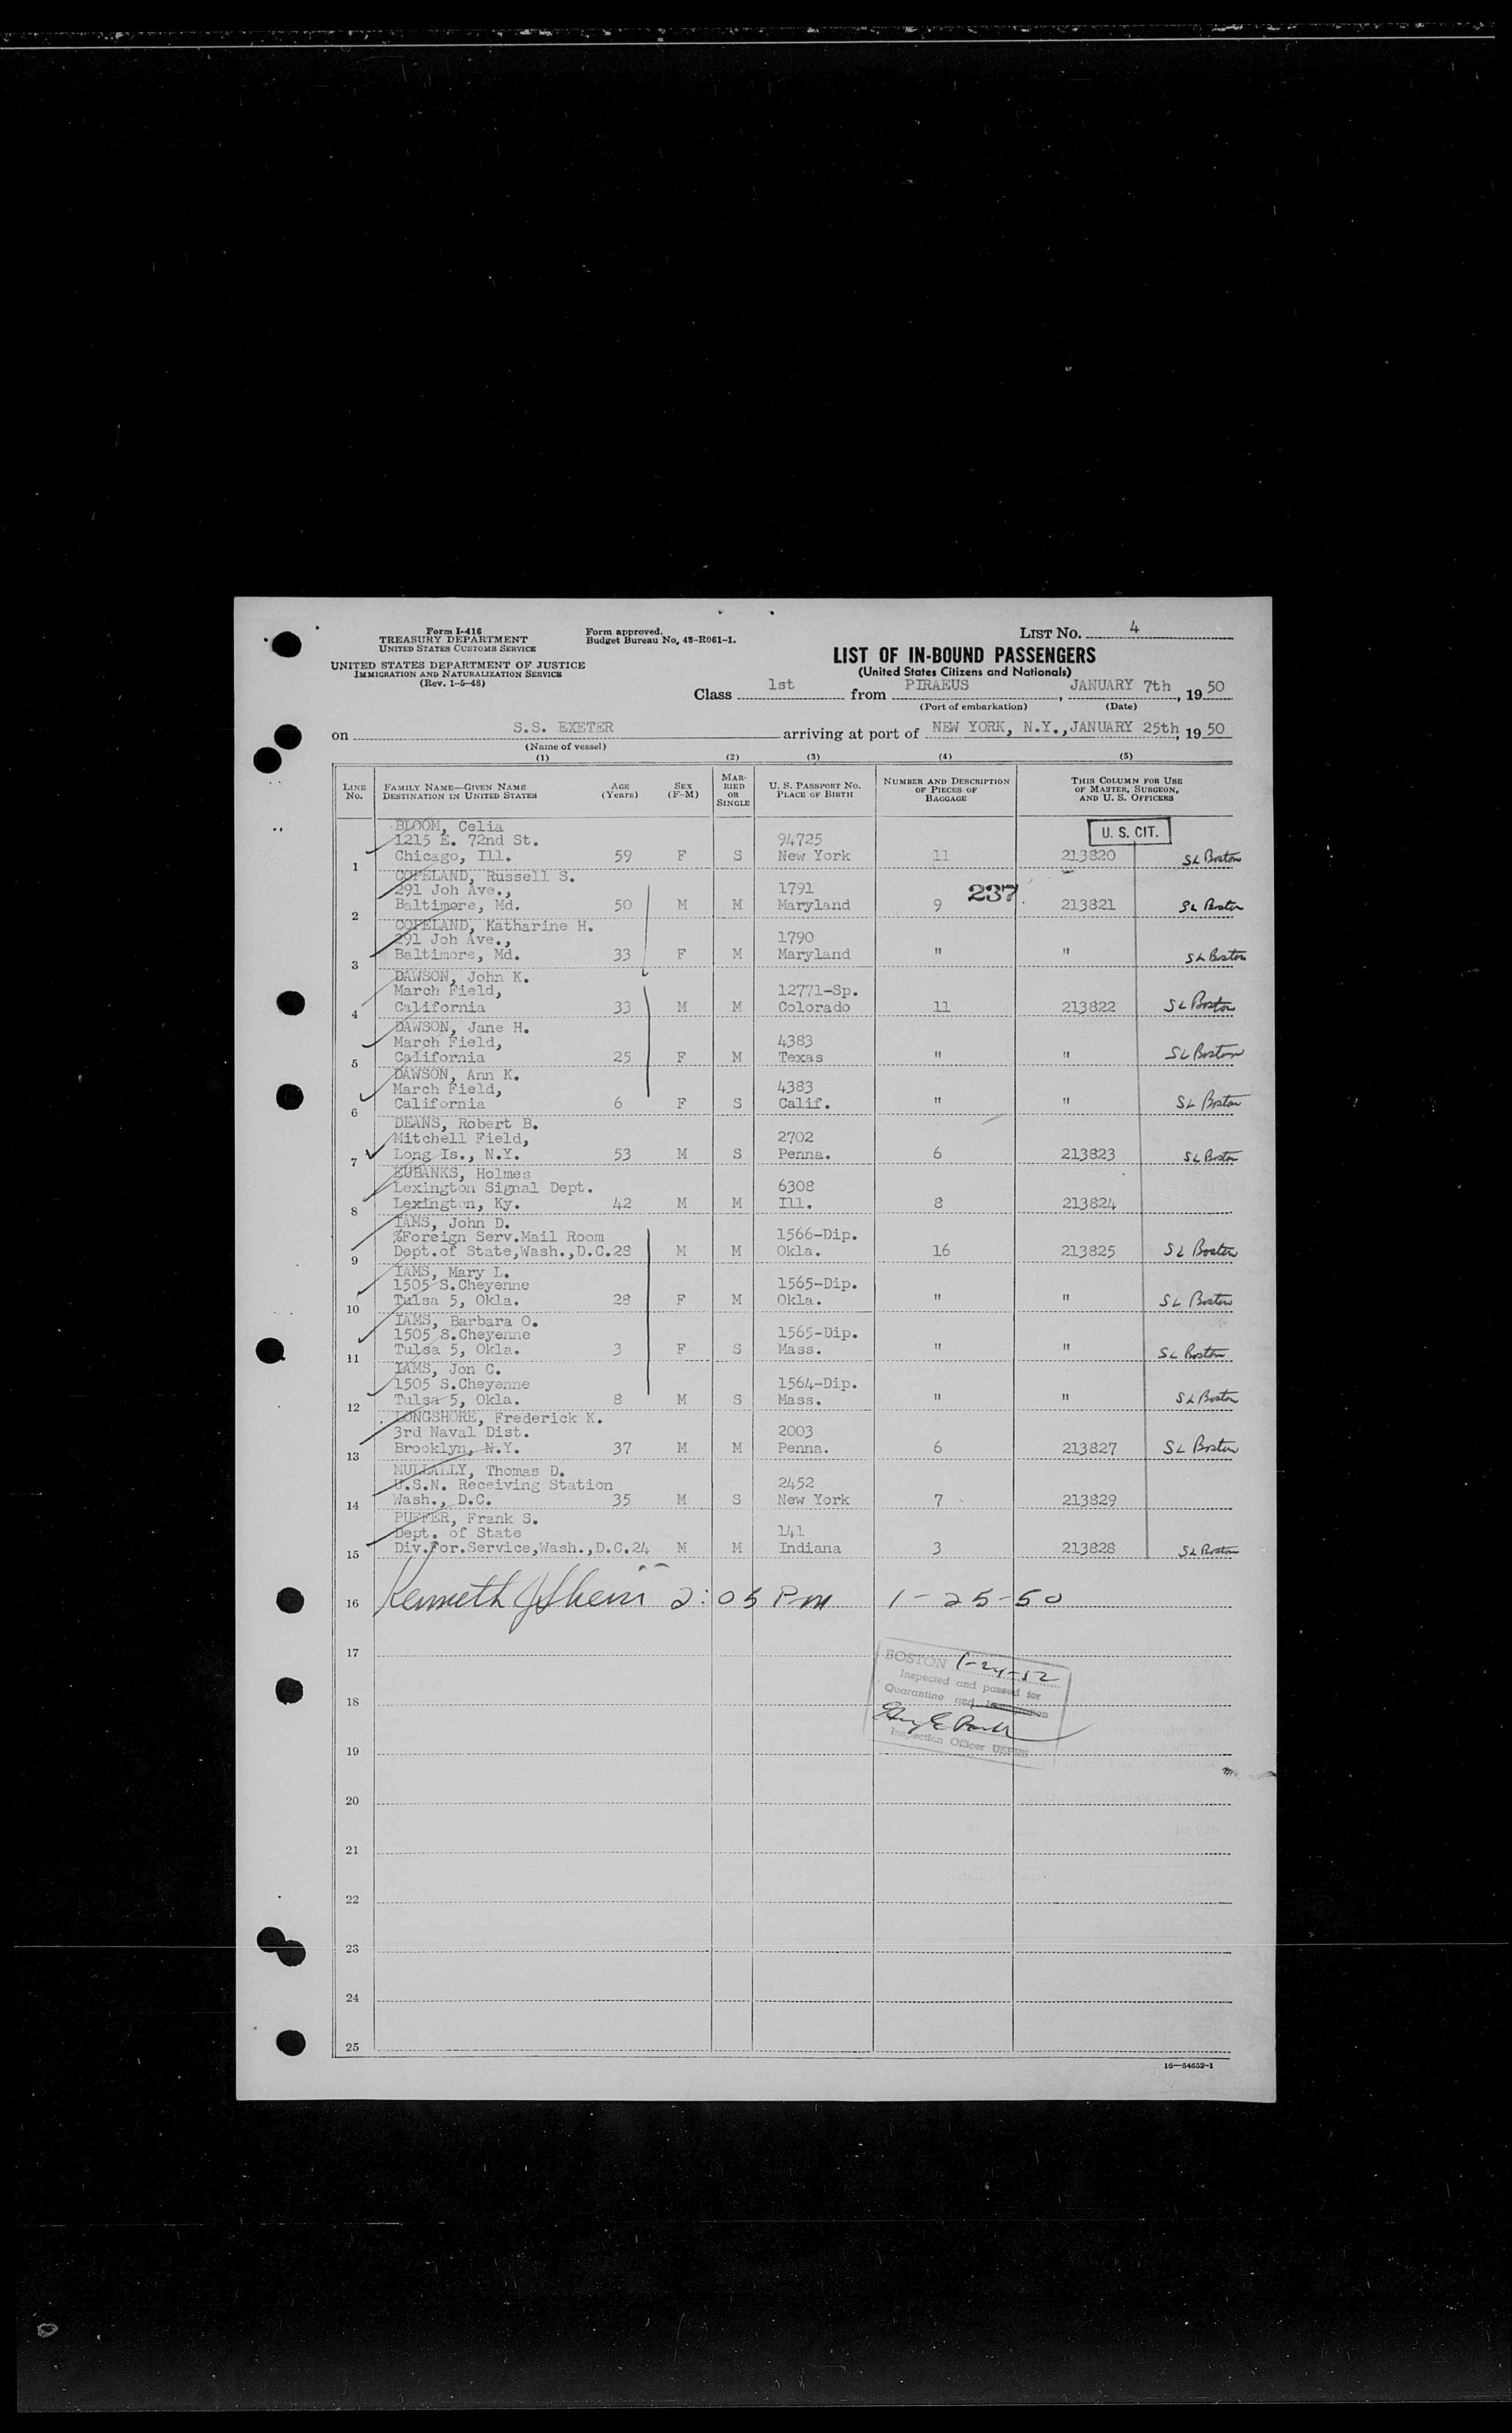 Form I-416
TREASURY DEPARTMENT
UNITED STATES CUSTOMS SERVICE
UNITED STATES DEPARTMENT OF JUSTICE
IMMIGRATION AND NATURALIZATION SERVICE
(Rev. 1-5-48)
Form approved.
Budget Bureau No. 43-R061-1.
LIST No. 4
LIST OF IN-BOUND PASSENGERS
(United States Citizens and Nationals)
Class 1st from PIRAEUS, JANUARY 7th, 1950
(Port of embarkation) (Date)
on S.S. EXETER arriving at port of NEW YORK, N.Y., JANUARY 25th, 1950
(Name of vessel)
(1) (2) (3) (4) (5)
LINE No. FAMILY NAME—GIVEN NAME DESTINATION IN UNITED STATES AGE (Years) SEX (F-M) MARRIED OR SINGLE U. S. PASSPORT No. PLACE OF BIRTH NUMBER AND DESCRIPTION OF PIECES OF BAGGAGE THIS COLUMN FOR USE OF MASTER, SURGEON, AND U. S. OFFICERS
U. S. CIT.
BLOOM, Celia
1215 E. 72nd St. 94725
1 Chicago, Ill. 59 F S New York 11 213820 SL Boston
COPELAND, Russell S.
291 Joh Ave., 1791 237
2 Baltimore, Md. 50 M M Maryland 9 213821 SL Boston
COPELAND, Katharine H.
291 Joh Ave., 1790
3 Baltimore, Md. 33 F M Maryland " " SL Boston
DAWSON, John K.
March Field, 12771-Sp.
4 California 33 M M Colorado 11 213822 SL Boston
DAWSON, Jane H.
March Field, 4383
5 California 25 F M Texas " " SL Boston
DAWSON, Ann K.
March Field, 4383
6 California 6 F S Calif. " " SL Boston
DEANS, Robert B.
Mitchell Field, 2702
7 Long Is., N.Y. 53 M S Penna. 6 213823 SL Boston
EUBANKS, Holmes
Lexington Signal Dept. 6308
8 Lexington, Ky. 42 M M Ill. 8 213824
IAMS, John D.
%Foreign Serv.Mail Room 1566-Dip.
9 Dept.of State,Wash.,D.C.28 M M Okla. 16 213825 SL Boston
IAMS, Mary L.
1505 S.Cheyenne 1565-Dip.
10 Tulsa 5, Okla. 28 F M Okla. " " SL Boston
IAMS, Barbara O.
1505 S.Cheyenne 1565-Dip.
11 Tulsa 5, Okla. 3 F S Mass. " " SL Boston
IAMS, Jon C.
1505 S.Cheyenne 1564-Dip.
12 Tulsa 5, Okla. 8 M S Mass. " " SL Boston
LONGSHORE, Frederick K.
3rd Naval Dist. 2003
13 Brooklyn, N.Y. 37 M M Penna. 6 213827 SL Boston
MULLALLY, Thomas D.
U.S.N. Receiving Station 2452
14 Wash., D.C. 35 M S New York 7 213829
PUFFER, Frank S.
Dept. of State 141
15 Div.For.Service,Wash.,D.C.24 M M Indiana 3 213828 SL Boston
16 Kenneth 2:05 Pm 1-25-50
17
BOSTON 1-24-52
Inspected and passed for
18
Quarantine and
Inspection Officer USPHS
19
20
21
22
23
24
25
16—54652-1